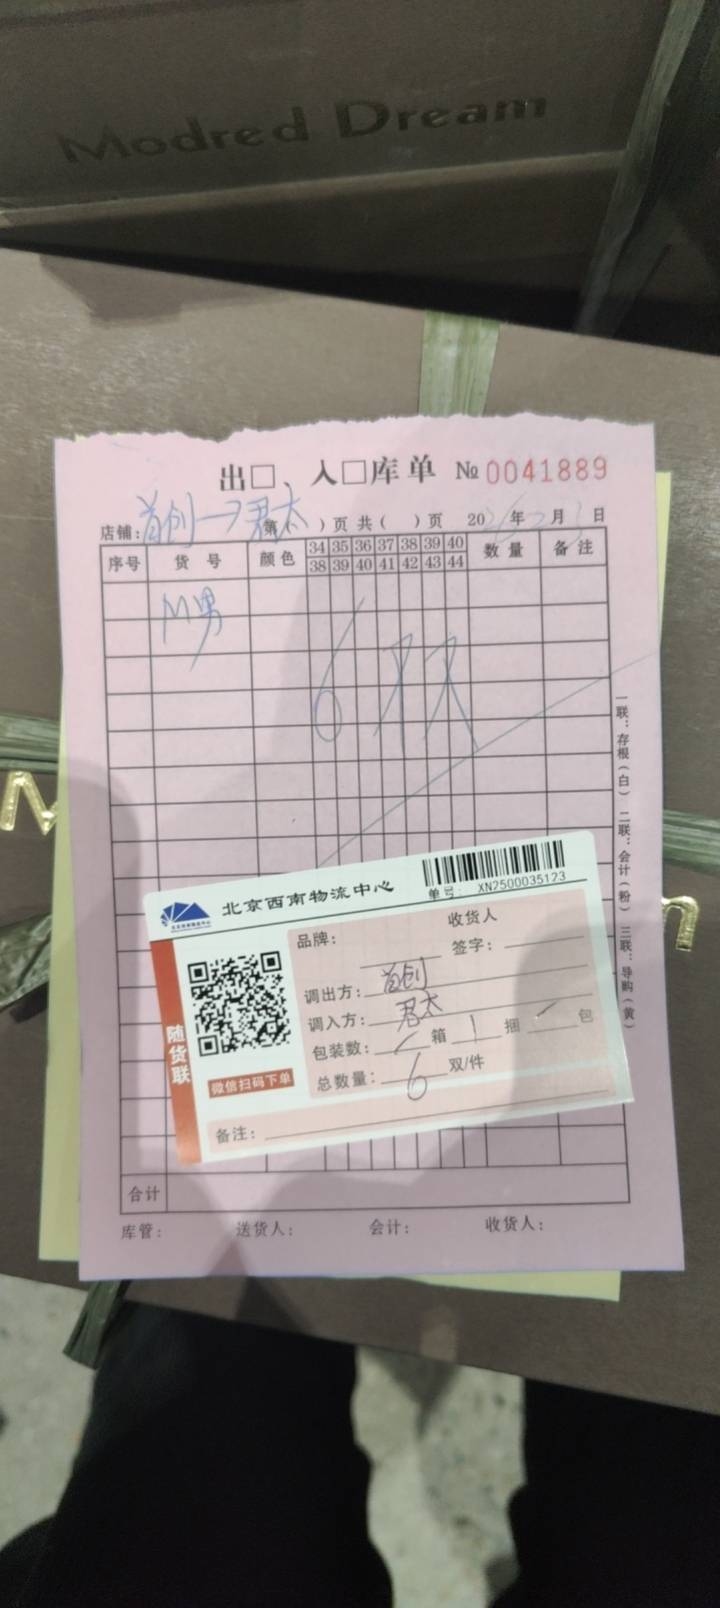 Modred Dream
出□、入□库单 № 0041889
店铺：首创→君太 第( )页 共( )页 20 年 月 日
序号 货号 颜色 34 35 36 37 38 39 40 数量 备注
38 39 40 41 42 43 44
M男
6
一联：存根（白） 二联：会计（粉） 三联：导购（黄）
M
n
北京西南物流中心
单号: XN2500035123
收货人
品牌：
签字：
调出方：首创
调入方：君太
包装数： 箱 1 捆 包
总数量：6 双/件
备注：
随货联
微信扫码下单
合计
库管： 送货人： 会计： 收货人：